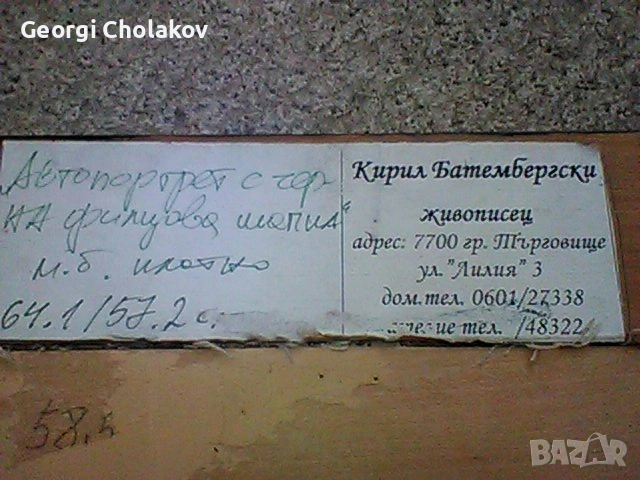 Georgi Cholakov
„Автопортрет с чер-
на филцова шапка"
м.б. платно
64.1/57.2 с.
Кирил Батембергски
живописец
адрес: 7700 гр. Търговище
ул."Лилия" 3
дом.тел. 0601/27338
ателие тел. /48322
58.5
BAZAR